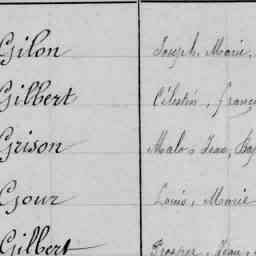 Gilon Joseph, Marie,
Gilbert Célestin, franç
Grison Malo, Jean, Bap
Gour Louis, Marie
Gilbert Prosper, Jean,